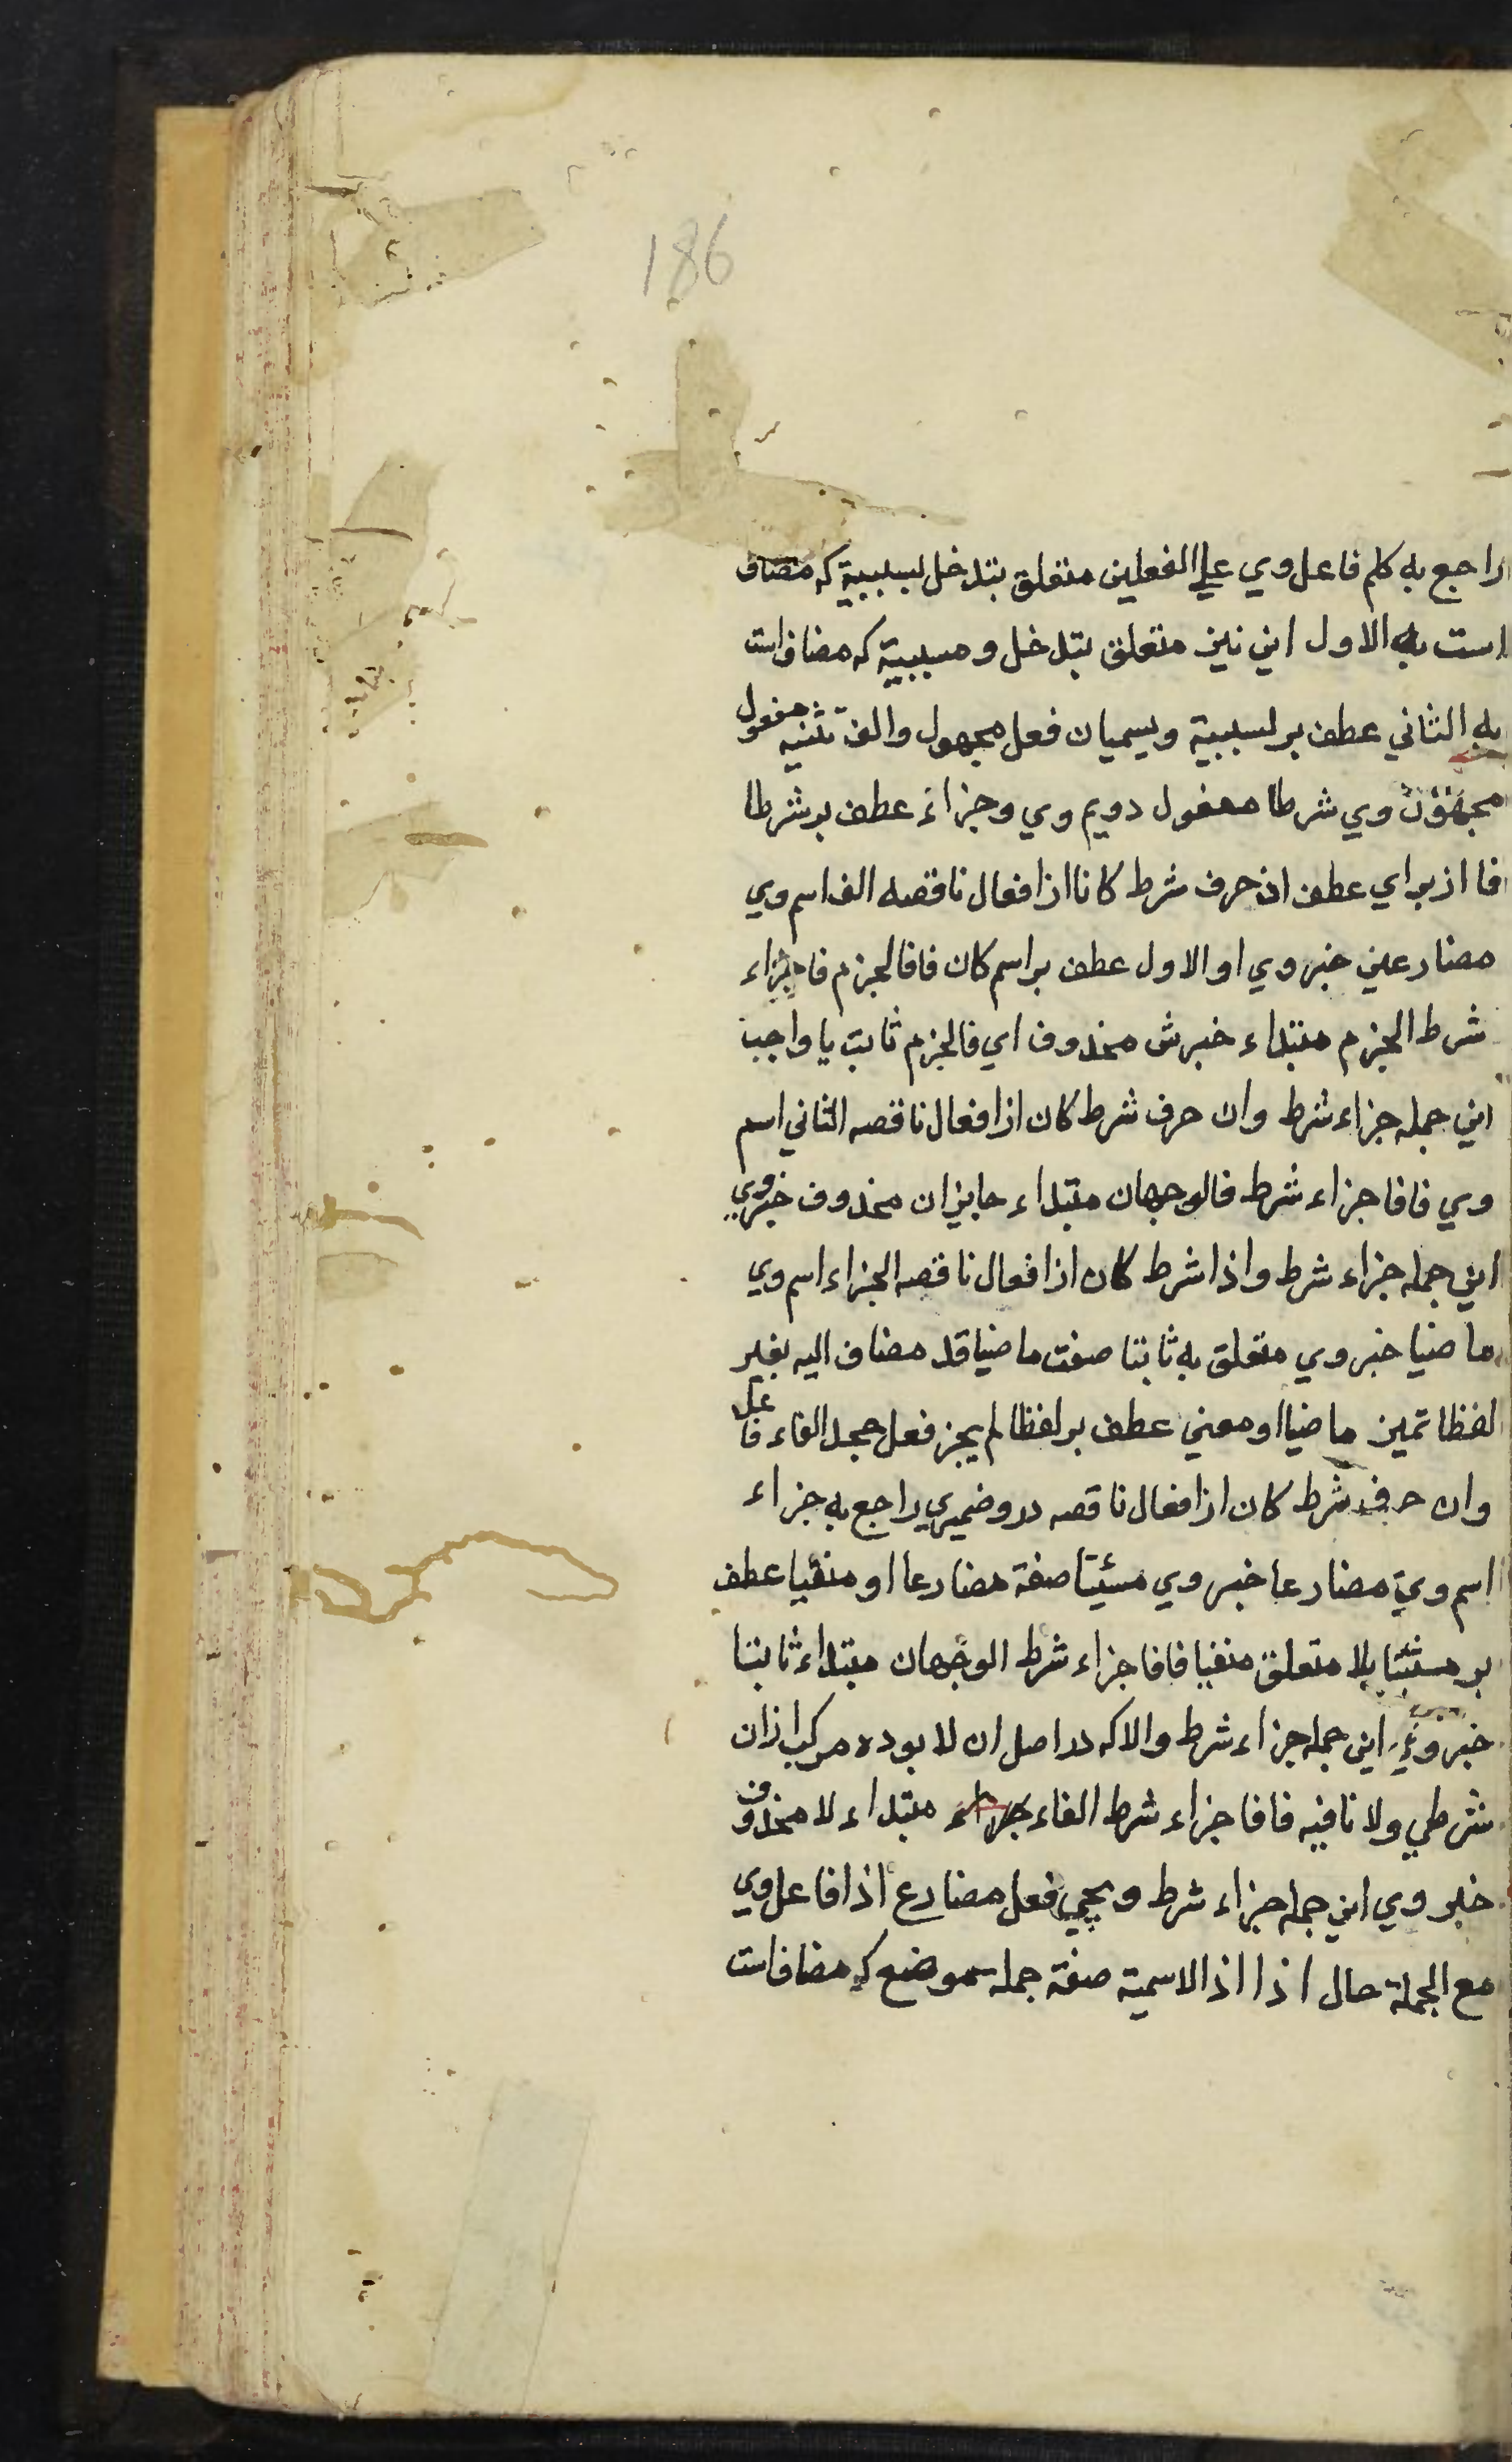 186
راجع به كلم فاعل وي علي الفعلين متعلق بتدخل لسببية كه مضاف
است به الاول اين نيز متعلق بتدخل ومسببية كه مضاف است
به الثاني عطف بر لسببية ويسميان فعل مجهول والف تثنيه مفعول
وي شرطا مفعول دويم وي وجزاء عطف بر شرطا
فا از براي عطف ان حرف شرط كانا از افعال ناقصه الف اسم وي
مضارعين خبر وي او الاول عطف بر اسم كان فافا لجزم فا جزاء
شرط الجزم مبتداء خبرش محذوف اي فالجزم ثابت يا واجب
اين جمله جزاء شرط وان حرف شرط كان از افعال ناقصه الثاني اسم
وي فافا جزاء شرط فالوجهان مبتداء جايزان محذوف خبر وي
اين جمله جزاء شرط واذا شرط كان از افعال ناقصه الجزاء اسم وي
ماضيا خبر وي متعلق به ثابتا صفت ماضيا قد مضاف اليه بغير
لفظا تميز ماضيا او معني عطف بر لفظا لم يجز فعل جحد الفاء فاعل
وان حرف شرط كان از افعال ناقصه درو ضميري راجع به جزاء
اسم وي مضارعا خبر وي مثبتا صفة مضارعا او منفيا عطف
بر مثبتا بلا متعلق منفيا فافا جزاء شرط الوجهان مبتداء ثابتا
خبر وي اين جمله جزاء شرط والا كه در اصل ان لا بوده مركب از ان
شرطي ولا نافيه فافا جزاء شرط الفاء مبتداء لا محذوف
خبر وي اين جمله جزاء شرط ويجي فعل مضارع اذا فاعل وي
مع الجملة حال اذا اذا الاسمية صفة جمله موضع كه مضاف است